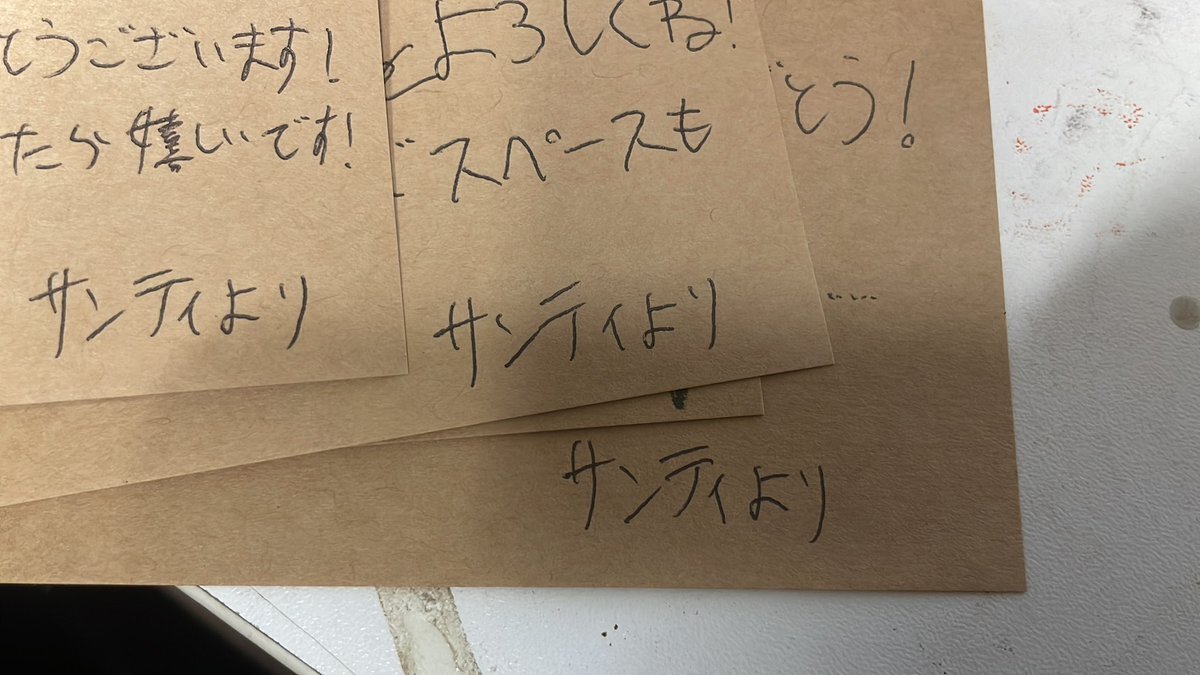 とうございます!
たら嬉しいです!
サンティより
よろしくね!
スペースも
サンティより
とう!
サンティより